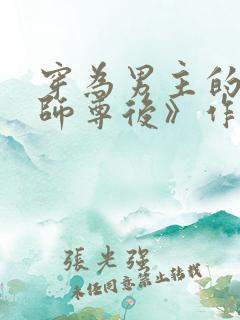 穿為男主的
師尊後》作
張光强
未任同意禁止转载